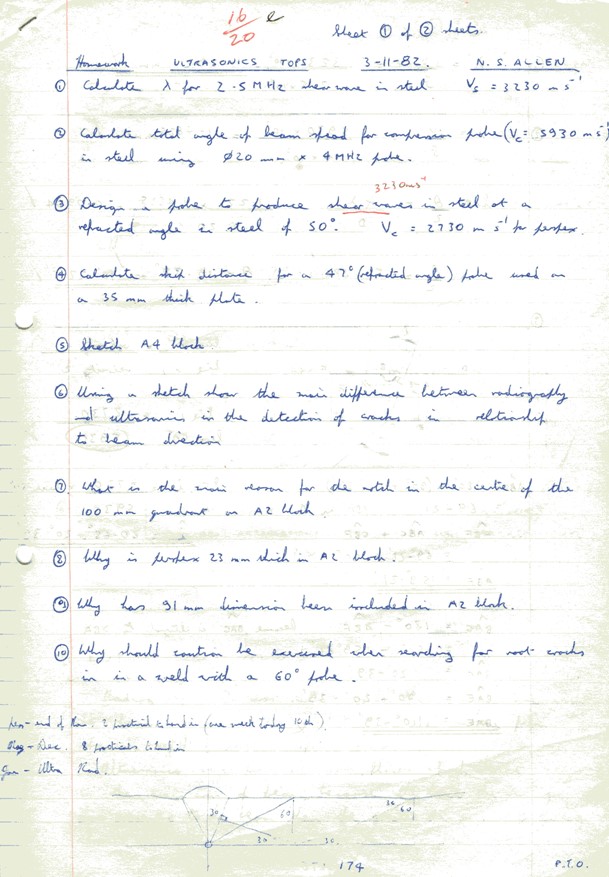 16
20
Sheet ① of ② sheets.
Homework ULTRASONICS TOPS 3-11-82. N. S. ALLEN
① Calculate λ for 2.5 MHz shear wave in steel Vs = 3230 m s⁻¹
② Calculate total angle of beam spread for compression probe (Vc = 5930 m s⁻¹)
in steel using Ø20 mm × 4 MHz probe.
3230 ms⁻¹
③ Design a probe to produce shear waves in steel at a
refracted angle in steel of 50°. Vc = 2730 m s⁻¹ for perspex.
④ Calculate skip distance for a 47° (refracted angle) probe used on
a 35 mm thick plate.
⑤ Sketch A4 block.
⑥ Using a sketch show the main difference between radiography
and ultrasonics in the detection of cracks in relationship
to beam direction
⑦ What is the main reason for the notch in the centre of the
100 mm quadrant on A2 block.
⑧ Why is perspex 23 mm thick in A2 block.
⑨ Why has 91 mm dimension been included in A2 block.
⑩ Why should caution be exercised when searching for root cracks
in in a weld with a 60° probe.
end of Nov. 2 practical to hand in (one week today 10th)
Dec. 8 practicals to hand in
Jan - Ultra Rad.
30
60
30
30
60
30
174
P.T.O.